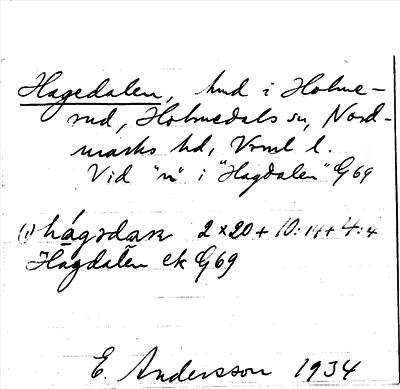 Hagedalen, hmd i Holme-
rud, Holmedals sn, Nord-
marks hd, Vrml l.
Vid "n" i "Hagdalen" G69
(1) hágsdaɷn 2x20 + 10:14 + 4:4
Hagdalen ek G69
E. Andersson 1934